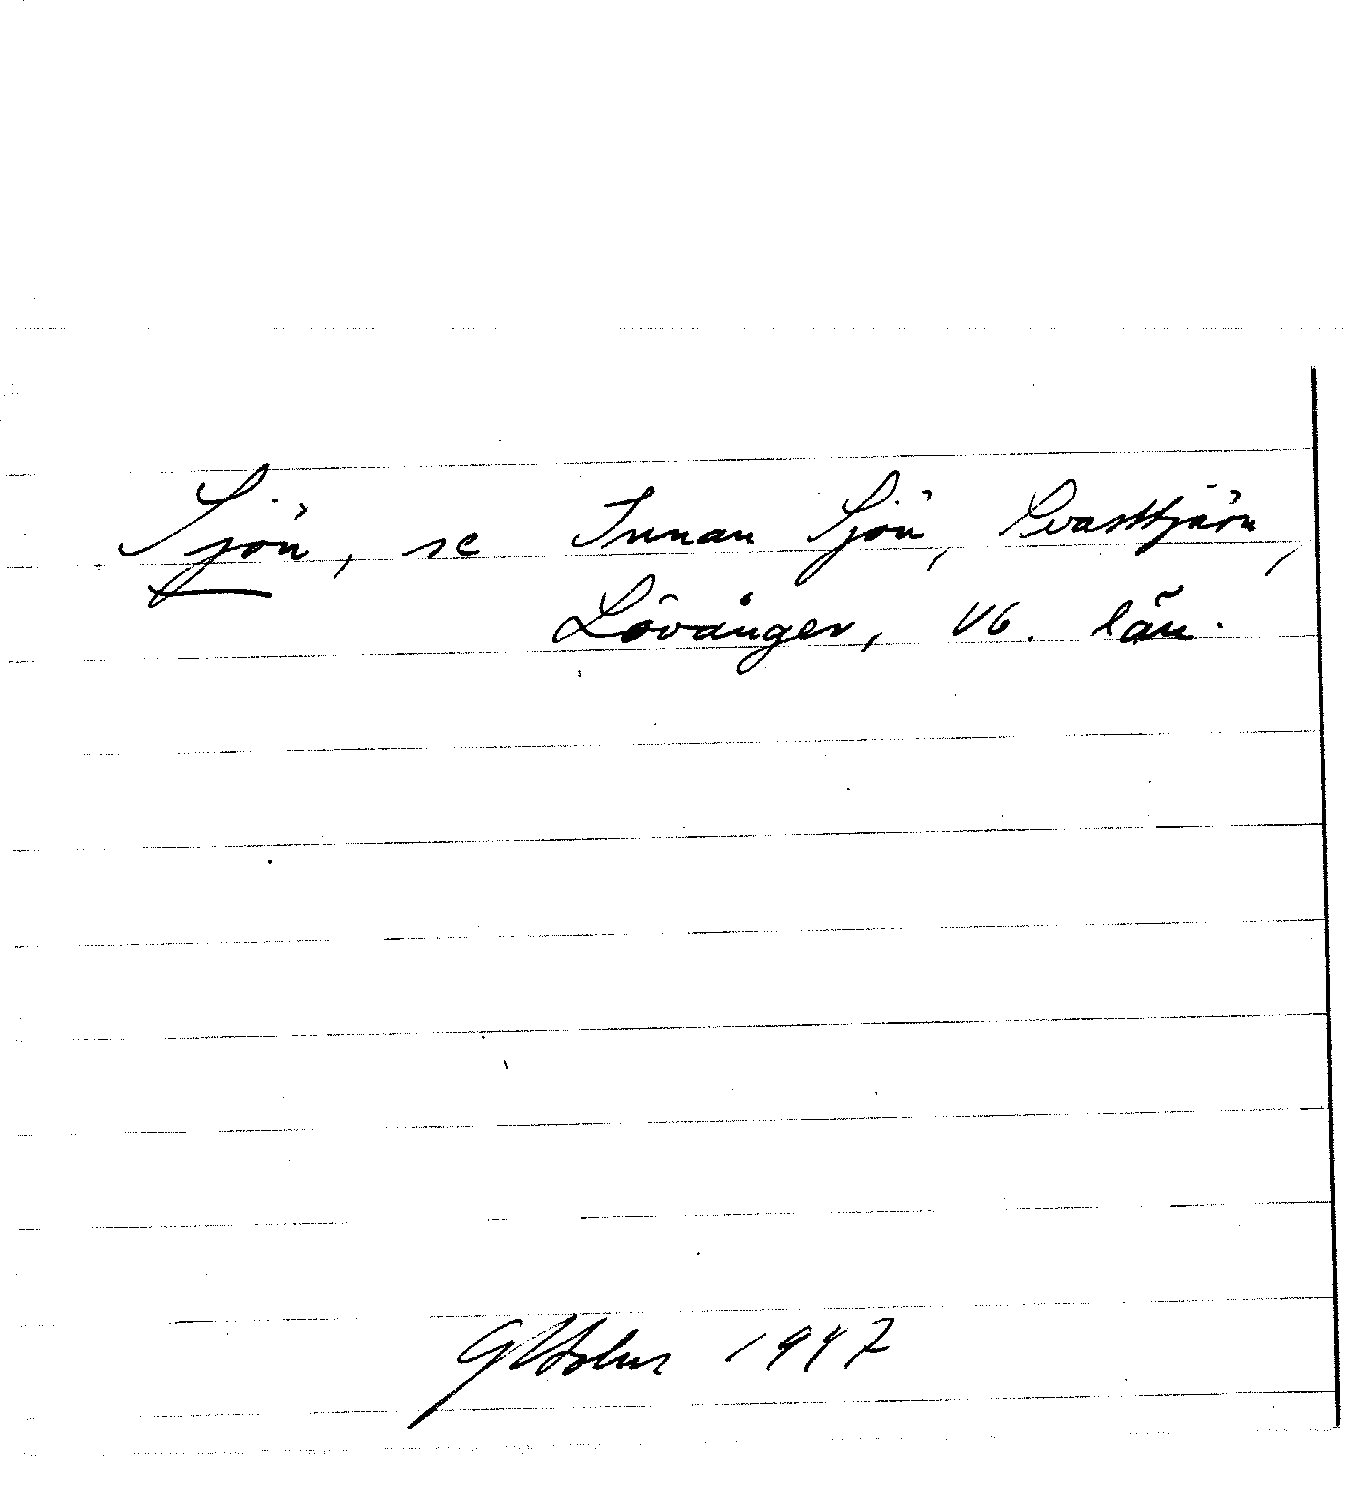 Sjön, se Innan Sjön, Gvasttjärn,
Lövånger, Vb. län.
1947